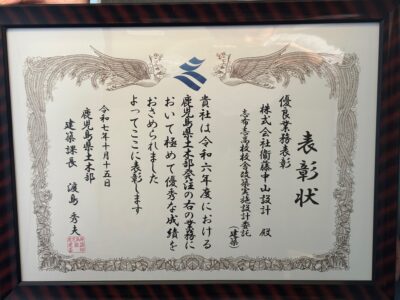 表彰状
優良業務表彰
株式会社衞藤中山設計　殿
志布志高校校舎改築実施設計委託
（建築）
貴社は令和六年度における
鹿児島県土木部発注の右の業務に
おいて極めて優秀な成績を
おさめられました
よってここに表彰します
令和七年十月十五日
鹿児島県土木部
建築課長　渡島秀夫